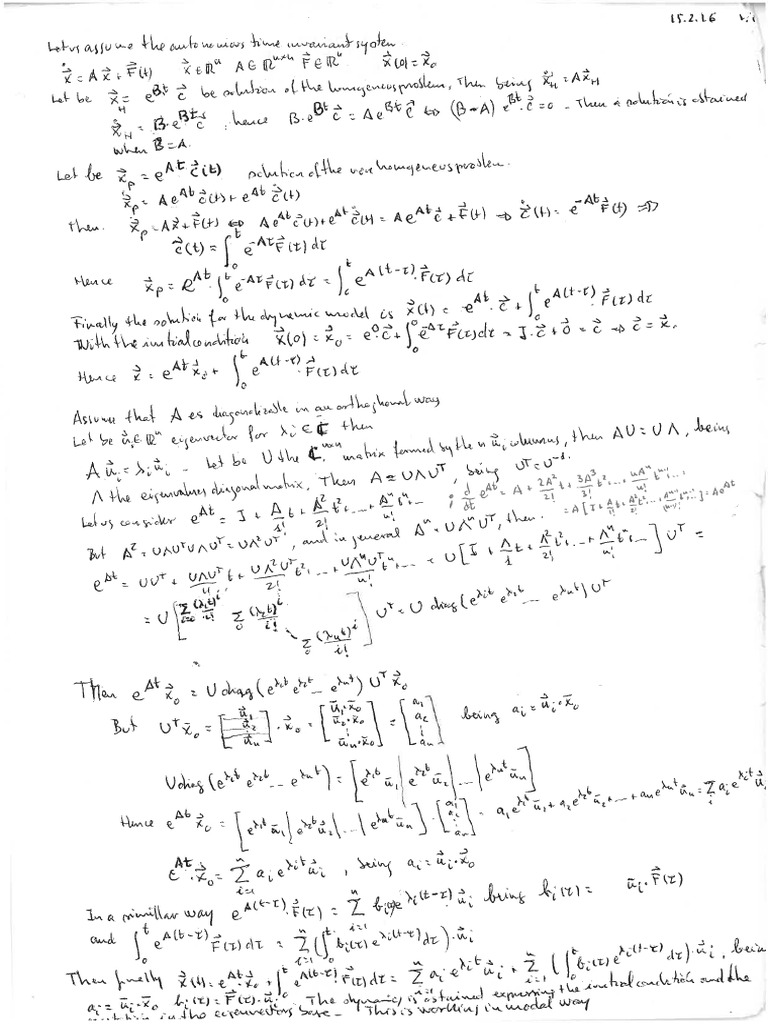 15.2.16
Let us assume the autonomous time invariant system.
ẋ⃗ = A x⃗ + F⃗(t)   x⃗ ∈ ℝⁿ   A ∈ ℝⁿˣⁿ   F⃗ ∈ ℝⁿ   x⃗(0) = x⃗₀
Let be x⃗_H = e^{Bt} c⃗ be solution of the homogeneous problem, Then being ẋ⃗_H = A x⃗_H
ẋ⃗_H = B·e^{Bt} c⃗, hence B·e^{Bt} c⃗ = A e^{Bt} c⃗ ⇔ (B−A) e^{Bt}·c⃗ = 0 – Then a solution is obtained
when B = A.
Let be x⃗_p = e^{At}·c⃗(t) solution of the non homogeneus problem.
ẋ⃗_p = A e^{At} c⃗(t) + e^{At} ċ⃗(t)
Then. ẋ⃗_p = A x⃗ + F⃗(t) ⇔ A e^{At} c⃗(t) + e^{At} ċ⃗(t) = A e^{At} c⃗ + F⃗(t) ⇒ ċ⃗(t) = e^{−At} F⃗(t) ⇒
c⃗(t) = ∫₀ᵗ e^{−Aτ} F⃗(τ) dτ
Hence x⃗_p = e^{At}·∫₀ᵗ e^{−Aτ} F⃗(τ) dτ = ∫₀ᵗ e^{A(t−τ)}·F⃗(τ) dτ
Finally the solution for the dynamic model is x⃗(t) = e^{At}·c⃗ + ∫₀ᵗ e^{A(t−τ)}·F⃗(τ) dτ
With the initial condition x⃗(0) = x⃗₀ = e⁰·c⃗ + ∫₀⁰ e^{−Aτ} F⃗(τ) dτ = I·c⃗ + 0⃗ = c⃗ ⇒ c⃗ = x⃗₀
Hence x⃗ = e^{At} x⃗₀ + ∫₀ᵗ e^{A(t−τ)}·F⃗(τ) dτ
Assume that A es diagonalizable in an orthoghonal way
Let be u⃗ᵢ ∈ ℝⁿ eigenvector for λᵢ ∈ ℂ then
A u⃗ᵢ = λᵢ u⃗ᵢ – Let be U the ℂⁿˣⁿ matrix formed by the n u⃗ᵢ columns, then AU = UΛ, being
Λ the eigenvalues diagonal matrix, Then A = UΛUᵀ, being Uᵀ = U⁻¹.
Let us consider e^{At} = I + A/1! t + A²/2! t² + ... + Aⁿ/n! tⁿ + ... ; d/dt e^{At} = A + 2A²/2! t + 3A³/3! t² + ... + nAⁿ/n! tⁿ⁻¹ + ...
= A [I + A/1! t + A²/2! t² + ... + Aⁿ⁻¹/(n−1)! tⁿ⁻¹ + ...] = A e^{At}
But A² = UΛUᵀUΛUᵀ = UΛ²Uᵀ, and in general Aⁿ = UΛⁿUᵀ, then.
e^{At} = UUᵀ + UΛUᵀ/1! t + UΛ²Uᵀ/2! t² + ... + UΛⁿUᵀ/n! tⁿ + ... = U [I + Λ/1 t + Λ²/2! t² + ... + Λⁿ/n! tⁿ ...] Uᵀ =
= U [Σ (λ₁t)ⁱ/i!   Σ (λ₂t)ⁱ/i!   ...   Σ (λₙt)ⁱ/i!] Uᵀ = U diag(e^{λ₁t} e^{λ₂t} ... e^{λₙt}) Uᵀ
Then e^{At} x⃗₀ = U diag(e^{λ₁t} e^{λ₂t} ... e^{λₙt}) Uᵀ x⃗₀
But Uᵀ x⃗₀ = [u⃗₁ u⃗₂ u⃗ₙ]·x⃗₀ = [u̅₁·x̅₀ u̅₂·x̅₀ ⋮ u̅ₙ·x̅₀] = [a₁ a₂ ⋮ aₙ] being aᵢ = u⃗ᵢ·x̅₀
U diag(e^{λ₁t} e^{λ₂t} ... e^{λₙt}) = [e^{λ₁t} u̅₁ | e^{λ₂t} u̅₂ | ... | e^{λₙt} u̅ₙ]
Hence e^{At} x⃗₀ = [e^{λ₁t} u̅₁ | e^{λ₂t} u⃗₂ | ... | e^{λₙt} u̅ₙ]·[a₁ a₂ ⋮ aₙ] = a₁e^{λ₁t} u̅₁ + a₂e^{λ₂t} u̅₂ + ... + aₙe^{λₙt} u̅ₙ = Σᵢ aᵢ e^{λᵢt} u⃗ᵢ
e^{At}·x⃗₀ = Σᵢ₌₁ⁿ aᵢ e^{λᵢt} u⃗ᵢ, being aᵢ = u⃗ᵢ·x⃗₀
In a simillar way e^{A(t−τ)}·F⃗(τ) = Σᵢ₌₁ⁿ bᵢ e^{λᵢ(t−τ)}·u⃗ᵢ being bᵢ(τ) = u̅ᵢ·F⃗(τ)
and ∫₀ᵗ e^{A(t−τ)} F⃗(τ) dτ = Σᵢ₌₁ⁿ (∫₀ᵗ bᵢ(τ) e^{λᵢ(t−τ)} dτ)·u⃗ᵢ
Then finally x⃗(t) = e^{At}·x⃗₀ + ∫₀ᵗ e^{A(t−τ)}·F⃗(τ) dτ = Σᵢ₌₁ⁿ aᵢ e^{λᵢt} u⃗ᵢ + Σᵢ₌₁ⁿ (∫₀ᵗ bᵢ(τ) e^{λᵢ(t−τ)} dτ)·u⃗ᵢ, being
aᵢ = u̅ᵢ·x̅₀ bᵢ(τ) = F⃗(τ)·u̅ᵢ – The dynamic is obtained expressing the initial condition and the
in the eigenvectors base – This is working in modal way